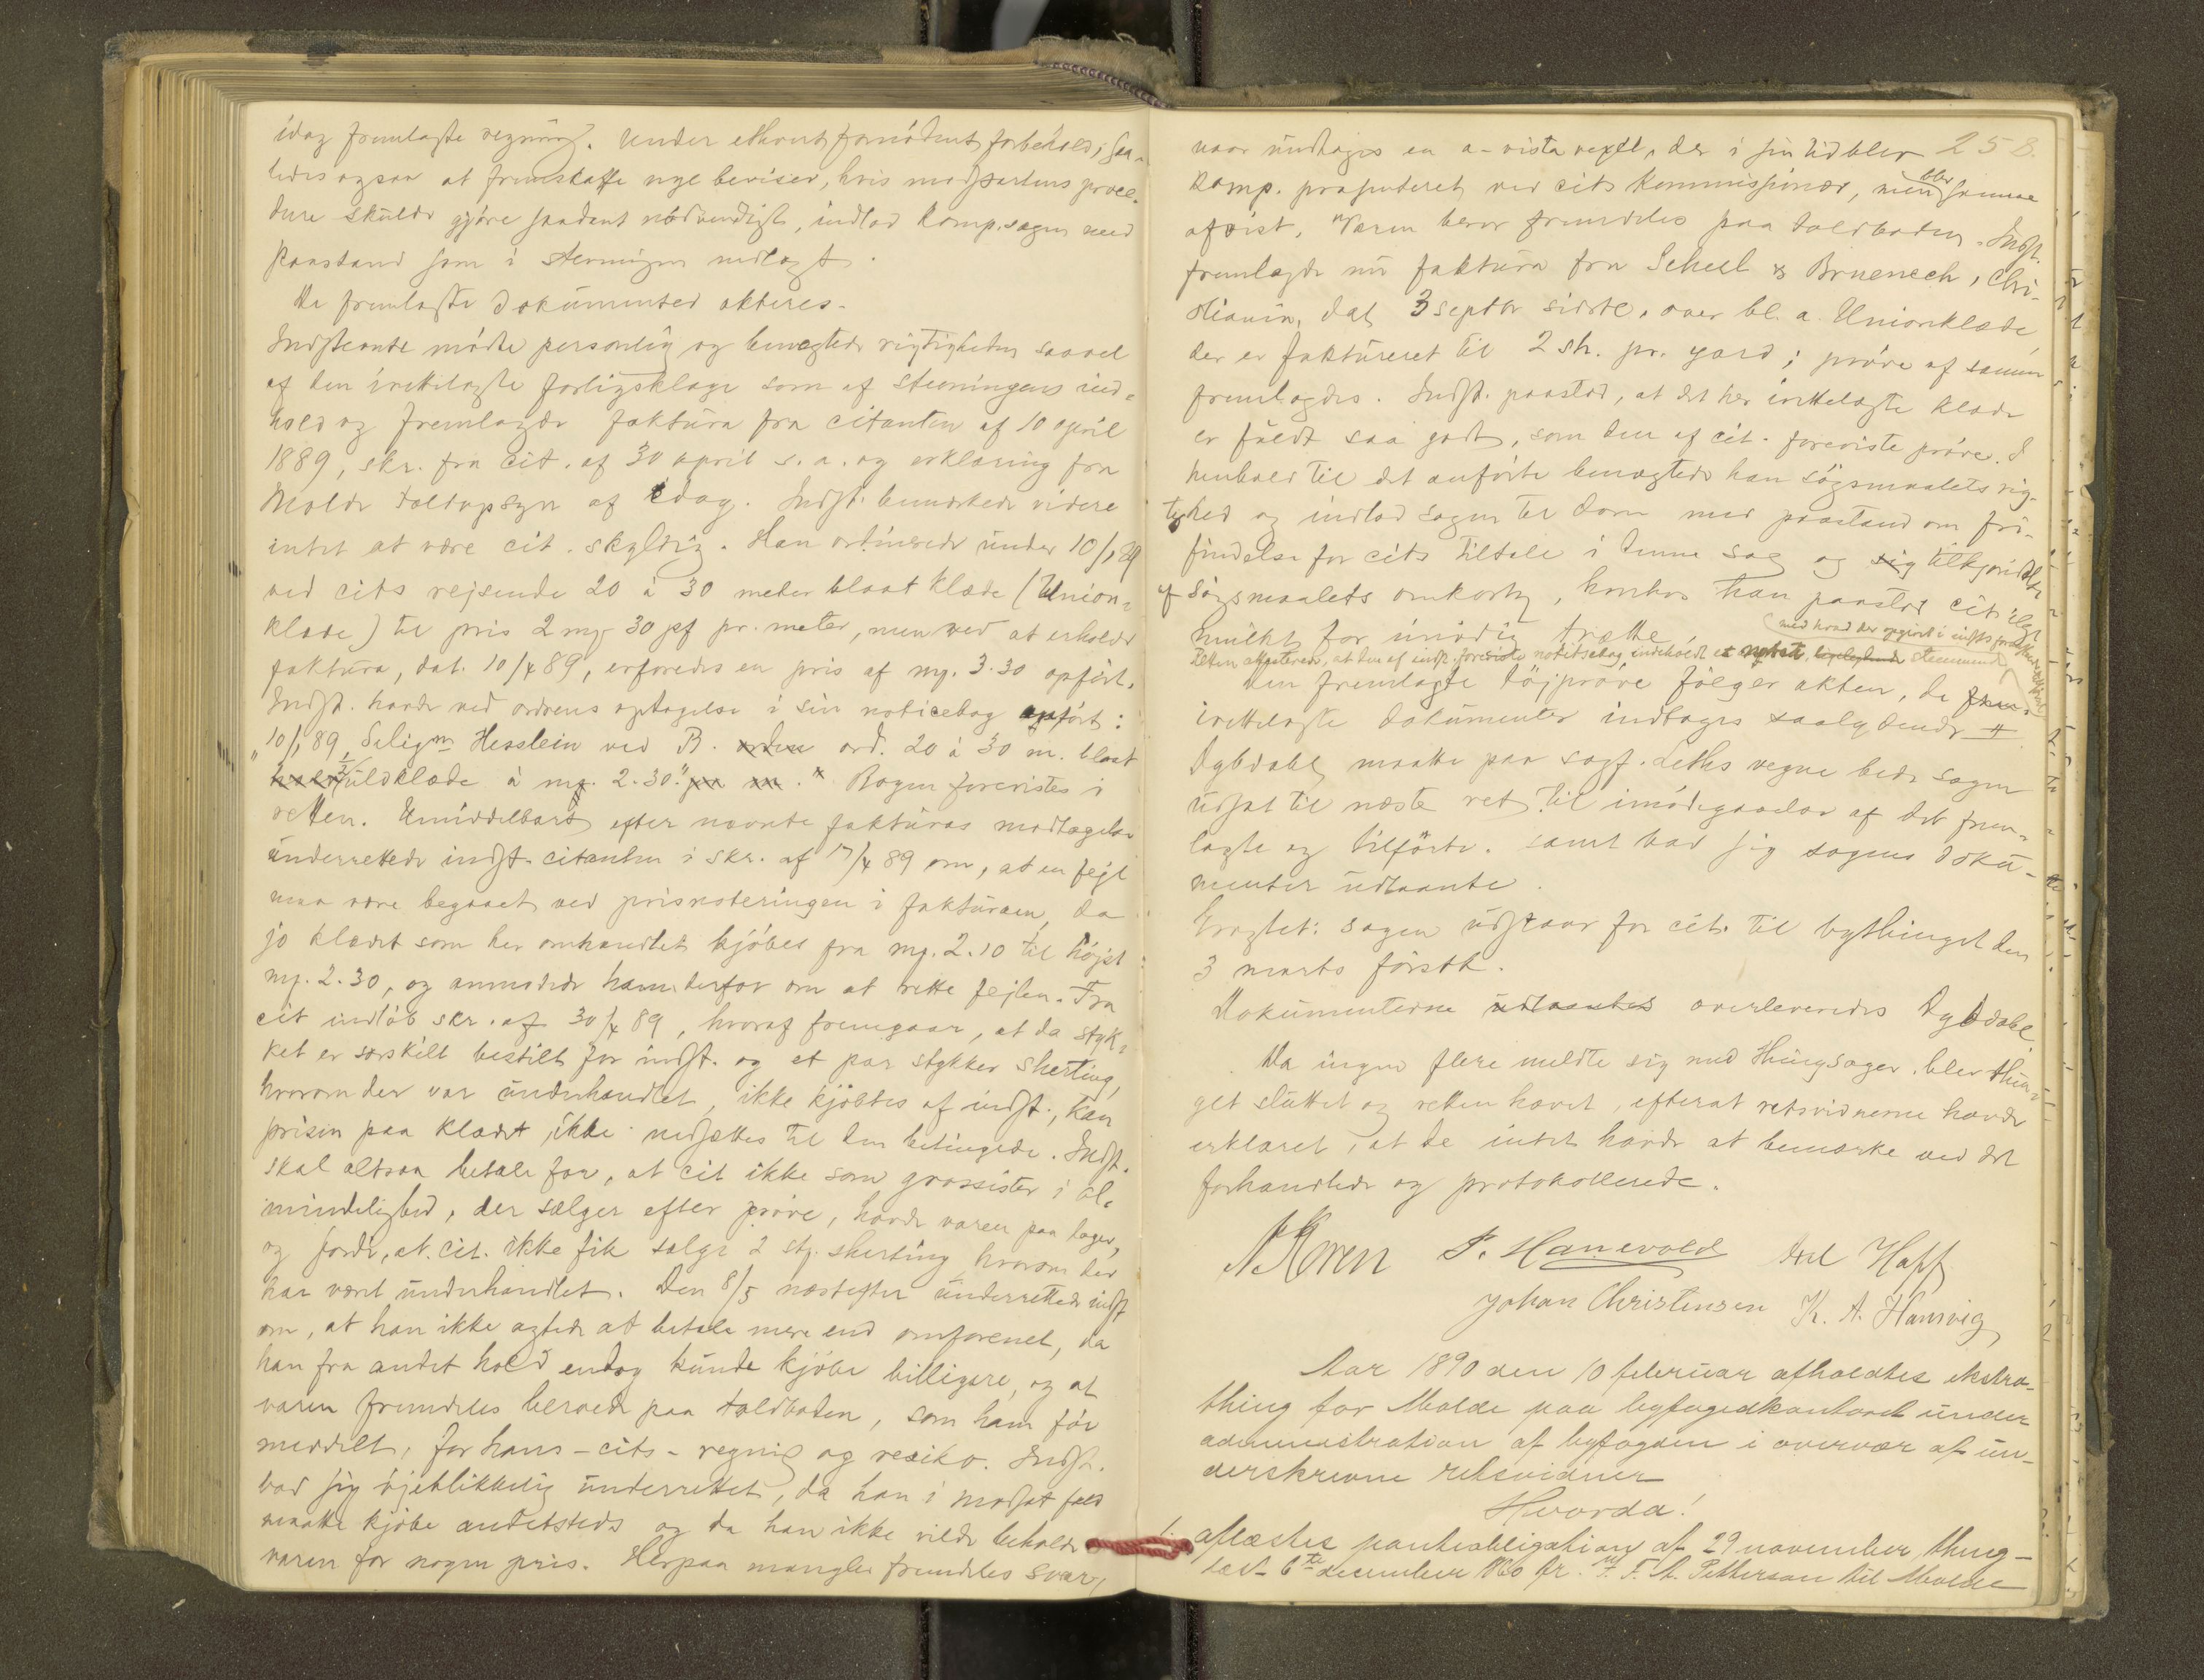 idag fremlagte regning. Under ethvert fornødent forbehold, saa-
ledes ogsaa at fremskaffe nye beviser, hvis modpartens proce-
dure skulde gjøre saadant nødvendigt, indlod komp. sagen med
paastand som i stevningen nedlagt.
De fremlagte dokumenter akteres.
Indstevnte mødte personlig og benegtede rigtigheden saavel
af den irettelagte forligsklage som af stevningens ind-
hold og fremlagde faktura fra citanten af 10 april
1889, skr. fra cit. af 30 april s. a. og erklæring fra
Molde toldopsyn af idag. Indst. bemærkede videre
intet at være cit. skyldig. Han ordinerede under 10/1 89
ved cits rejsende 20 à 30 meter blaat klæde (Union-
klæde) til pris 2 mg 30 pf pr. meter, men ved at erholde
faktura, dat. 10/4 89, erfaredes en pris af mg. 3.30 opført.
Indst. havde ved ordrens optagelse i sin noticebog opført:
"10/1 89, Seligm Hesslein ved B. ord. 20 à 30 m. blaat
1/2 uldklæde à mg. 2.30." Bogen forevistes i
retten. Umiddelbart efter nævnte fakturas modtagelse
underrettede indst. citanten i skr. af 17/4 89 om, at en fejl
maa være begaaet ved prisnoteringen i fakturaen, da
jo klædet som her omhandlet kjøbes fra mg. 2.10 til højst
mg. 2.30, og anmodede ham derfor om at rette fejlen. Fra
cit indløb skr. af 30/4 89, hvoraf fremgaar, at da styk-
ket er særskilt bestilt for indst. og et par stykker sherting,
hvorom der var underhandlet, ikke kjøbtes af indst., kan
prisen paa klædet ikke nedsættes til den betingede. Indst.
skal altsaa betale for, at cit ikke som grossister i al-
mindelighed, der sælger efter prøve, havde varen paa lager,
og fordi, at cit. ikke fik sælge 2 stg. sherting hvorom der
har været underhandlet. Den 8/5 næstefter underrettede indst
om, at han ikke agtede at betale mere end omforenet, da
han fra andet hold endog kunde kjøbe billigere, og at
varen fremdeles beroede paa toldboden, som ham før
meddelt, for hans - cits - regning og resiko. Indst.
bad sig øjeblikkelig underrettet, da han i modsat fald
maatte kjøbe andetsteds og da han ikke vilde beholde
varen for nogen pris. Herpaa mangler fremdeles svar,
258.
naar undtages en a-vista vexel, der i sin tid blev
komp. præsenteret ved cits kommissionær, men blev samme
afvist. Varen beror fremdeles paa toldboden. Indst.
fremlagde nu faktura fra Scheel & Bruenech, Chri-
stiania, dat 3 septbr sidstl. over bl. a. Unionklæde,
der er faktureret til 2 sh. pr. yard; prøve af samme
fremlagdes. Indst. paastod, at det her irettelagte klæde
er fuldt saa godt, som den af cit. foreviste prøve. I
henhold til det anførte benegtede han søgsmaalets rig-
tighed og indlod sagen til dom med paastand om fri-
findelse for cits tiltale i denne sag og sig tilkjendelse
af søgsmaalets omkostn, hvorhos han paastod cit ilagt
mulkt for unødig trætte.
Retten attesterede, at den af indst. foreviste notitsbog indeholdt et notat, stemmende
med hvad der opgivet i indsts
Den fremlagte tøjprøve følger akten, de
irettelagte dokumenter indtages saalydende #
Dybdahl maatte paa sagf. Leths vegne bede sagen
udsat til næste ret til imødegaaelse af det frem-
lagte og tilførte. samt bad sig sagens doku-
menter udlaante.
Eragtet: sagen udstaar for cit. til bythinget den
3 marts førstk.
Dokumenterne udlaantes overleveredes Dybdahl.
Da ingen flere meldte sig med thingsager, blev thin-
get sluttet og retten hævet, efterat retsvidnerne havde
erklæret, at de intet havde at bemærke ved det
forhandlede og protokollerede.
Koren P. Hanevold Axel Hoff
Johan Christensen K. A. Hansvig
Aar 1890 den 10 februar afholdtes ekstra-
thing for Molde paa byfogedkontoret under
administration af byfogden i overvær af un-
derskrevne retsvidner
Hvorda!
1. aflæstes panteobligation af 29 november, thing-
læst 6te december 1860 fr. F. A. Petterson til Molde